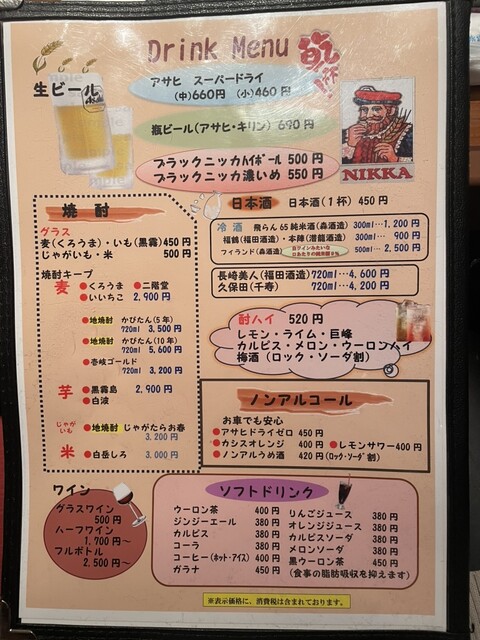 Drink Menu 乾杯
生ビール
Asahi
アサヒ スーパードライ
(中)660円 (小)460円
瓶ビール(アサヒ・キリン) 690円
ブラックニッカハイボール 500円
ブラックニッカ濃いめ 550円
NIKKA
焼酎
グラス
麦(くろうま)・いも(黒霧)450円
じゃがいも・米 500円
焼酎キープ
麦 ●くろうま ●二階堂
●いいちこ 2,900円
●地焼酎 かぴたん(5年)
720ml 3,500円
●地焼酎 かぴたん(10年)
720ml 5,600円
●壱岐ゴールド
720ml 3,200円
芋 ●黒霧島 2,900円
●白波
じゃがいも ●地焼酎 じゃがたらお春
3,200円
米 ●白岳しろ 3,000円
日本酒 日本酒(1杯) 450円
冷酒 飛らん65純米酒(森酒造) 300ml…1,200円
福鶴(福田酒造)・本陣(潜龍酒造) 300ml… 900円
フィランド(森酒造) 500ml…2,500円
長崎美人(福田酒造)720ml…4,600円
久保田(千寿) 720ml…4,200円
酎ハイ 520円
レモン・ライム・巨峰
カルピス・メロン・ウーロンハイ
梅酒(ロック・ソーダ割)
ノンアルコール
お車でも安心
●アサヒドライゼロ 450円
●カシスオレンジ 400円 ●レモンサワー400円
●ノンアルうめ酒 420円(ロック・ソーダ割)
ワイン
グラスワイン
500円
ハーフワイン
1,700円～
フルボトル
2,500円～
ソフトドリンク
ウーロン茶 400円
ジンジーエール 380円
カルピス 380円
コーラ 380円
コーヒー(ホット・アイス) 400円
ガラナ 450円
りんごジュース 380円
オレンジジュース 380円
カルピスソーダ 380円
メロンソーダ 380円
黒ウーロン茶 450円
(食事の脂肪吸収を抑えます)
※表示価格に、消費税は含まれております。